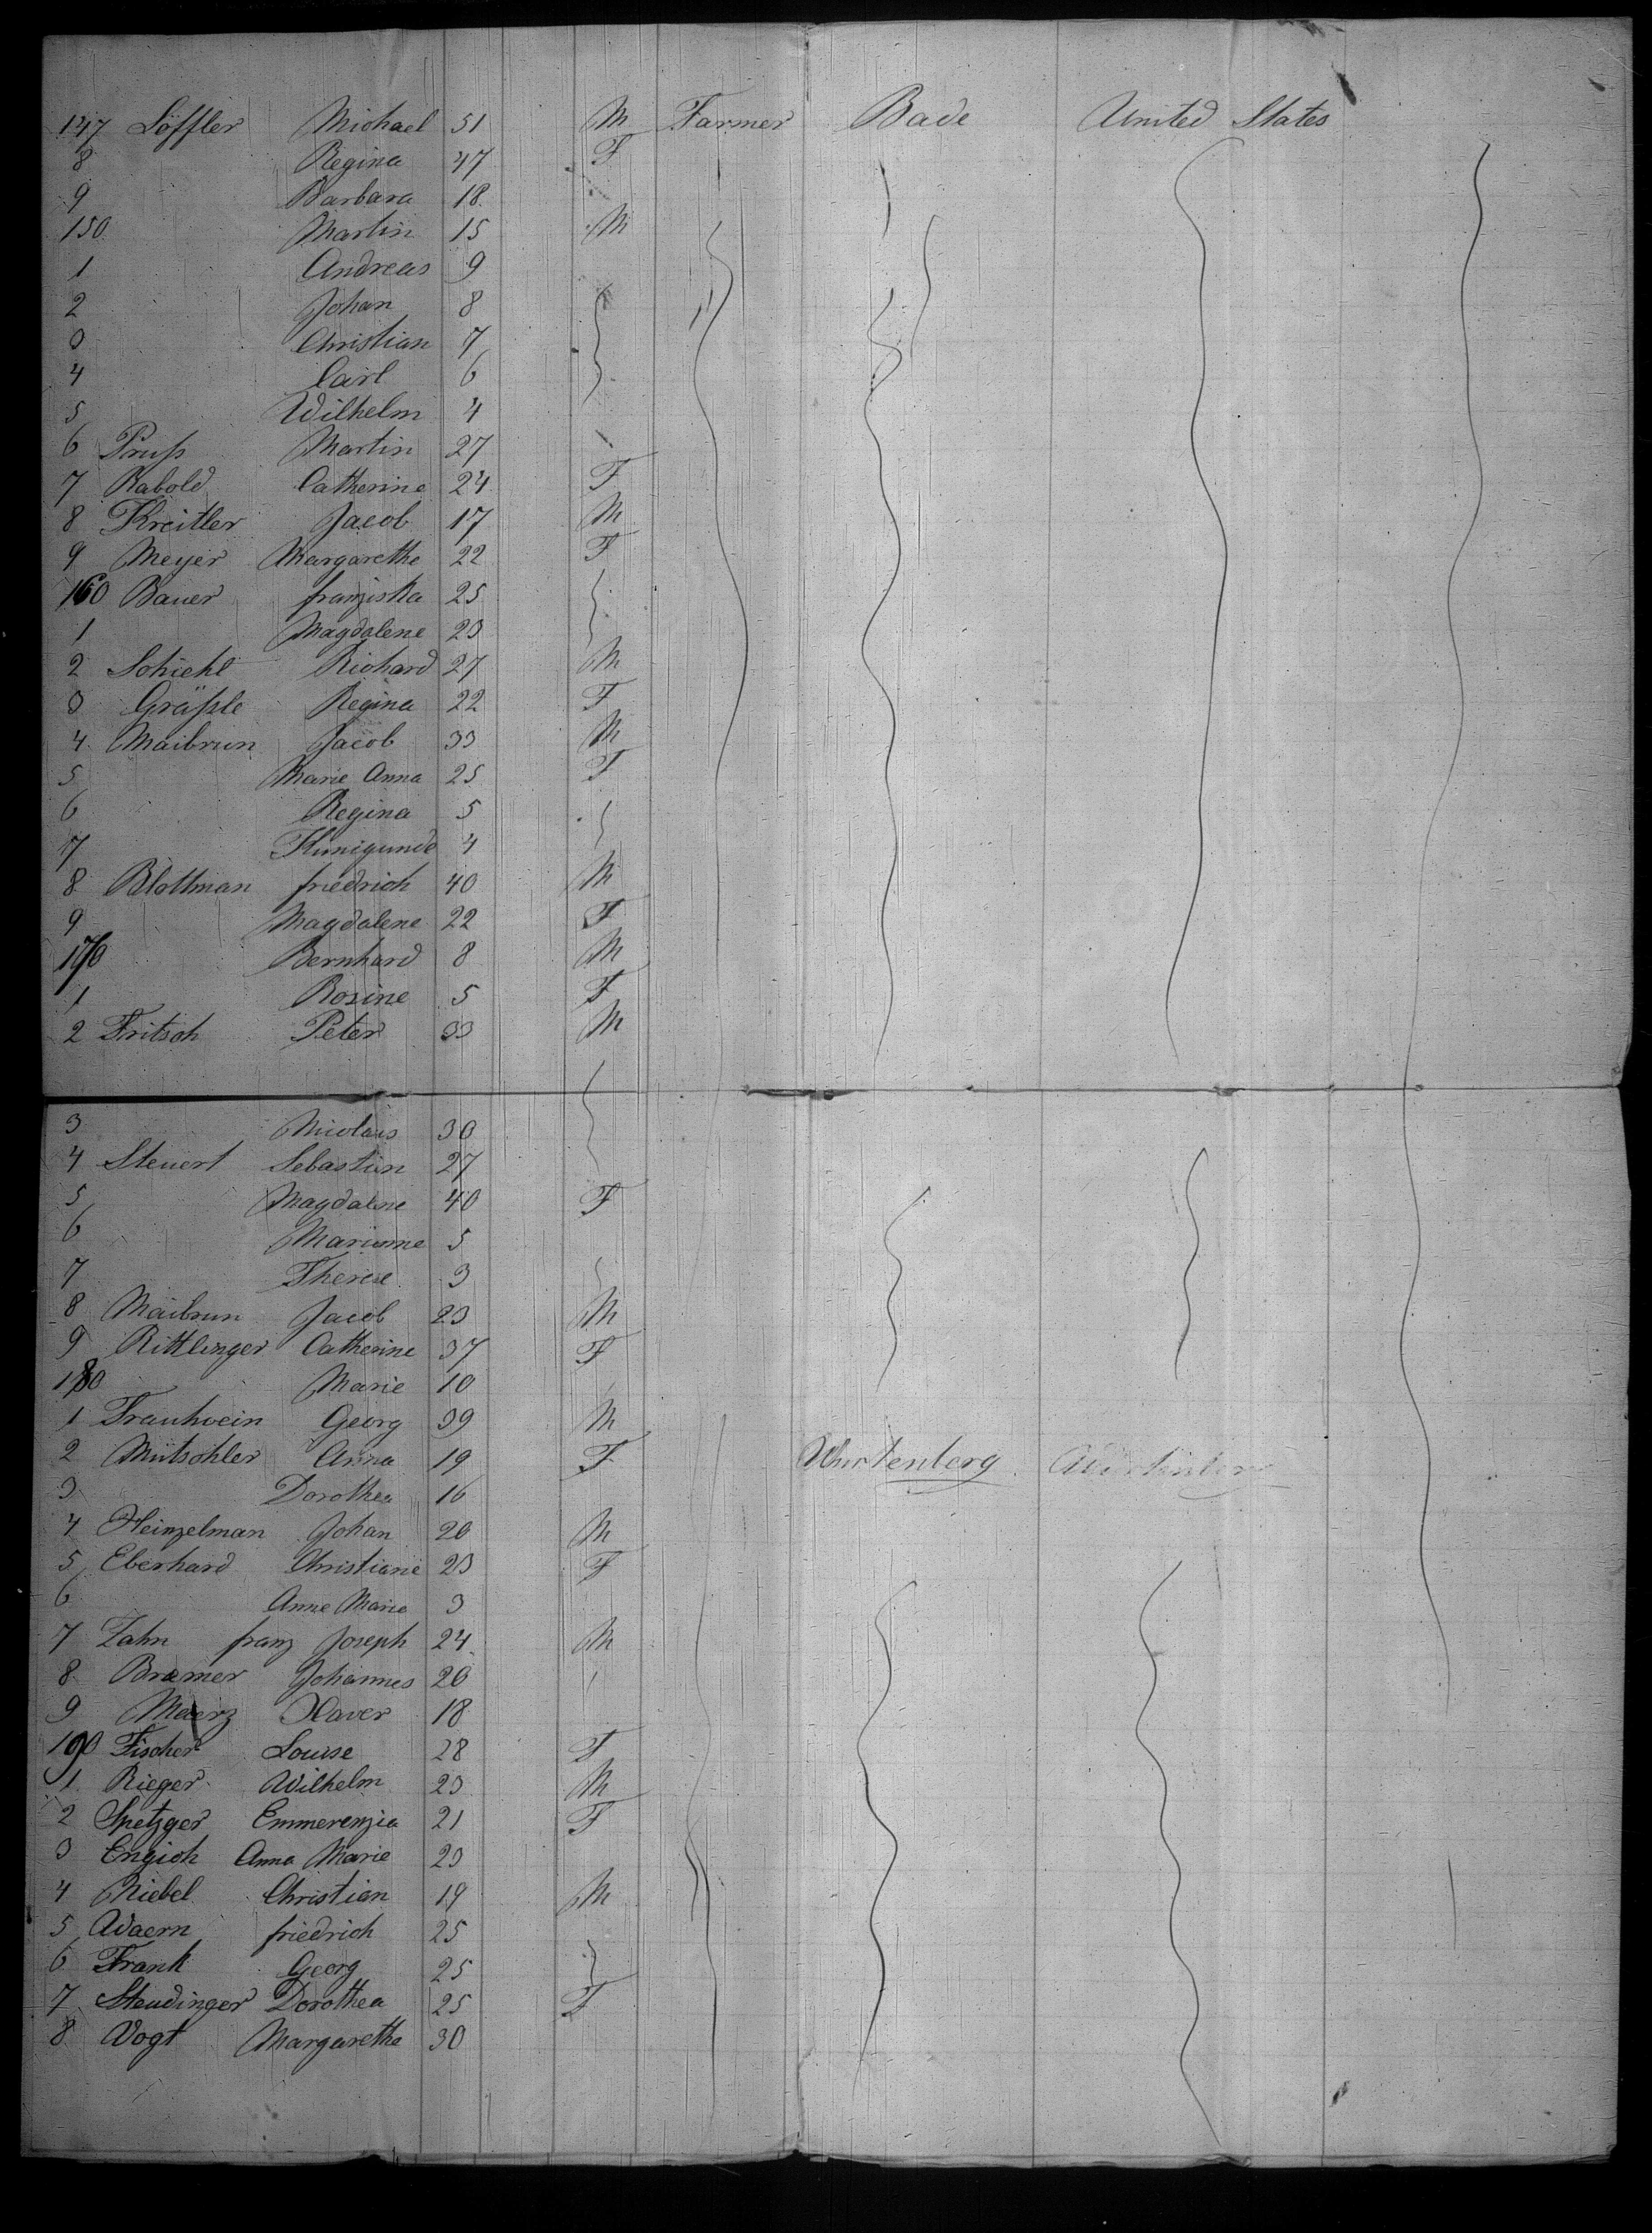 147 Löffler Michael 51 M Farmer Bade United States
8 Regina 47 F
9 Barbara 18
150 Martin 15 M
1 Andreas 9
2 Johan 8
3 Christian 7
4 Carl 6
5 Wilhelm 4
6 Pruß Martin 27
7 Rabold Catherine 24 F
8 Kreitler Jacob 17 M
9 Meyer Margarethe 22 F
160 Bauer franziska 25
1 Magdalene 23
2 Schiehl Richard 27 M
3 Gräßle Regina 22 F
4 Maibrun Jacob 33 M
5 Marie Anna 25 F
6 Regina 5
7 Kunigunde 4
8 Blottman friedrich 40 M
9 Magdalene 22 F
170 Bernhard 8 M
1 Rosine 5 F
2 Fritsch Peter 33 M
3 Nicolaus 30
4 Steuert Sebastian 27
5 Magdalene 40 F
6 Marianne 5
7 Therese 3
8 Maibrun Jacob 23 M
9 Rittlinger Catherine 37 F
180 Marie 10
1 Trauhvein Georg 39 M
2 Mütschler Anna 19 F Wurtenberg
3 Dorothea 16
4 Heinzelman Johan 20 M
5 Eberhard Christiane 23 F
6 Anne Marie 3
7 Zahn franz Joseph 24 M
8 Bramer Johannes 20
9 Maerz Xaver 18
190 Fischer Louise 28 F
1 Rieger Wilhelm 23 M
2 Spetzger Emmerenzia 21 F
3 Engich Anna Marie 23
4 Riebel Christian 19 M
5 friedrich 25
6 Frank Georg 25
7 Steudinger Dorothea 25 F
8 Vogt Margaretha 30